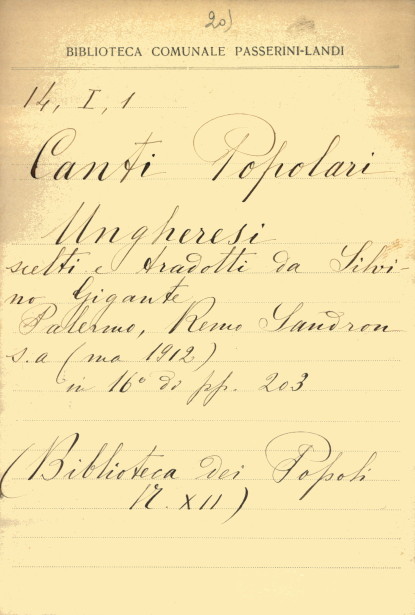 20)
BIBLIOTECA COMUNALE PASSERINI-LANDI
14, I, 1
Canti Popolari
Ungheresi
scelti e tradotti da Silvi-
no Gigante
Palermo, Remo Sandron
s.a (ma 1912)
in 16° di pp. 203
(Biblioteca dei Popoli
XII)